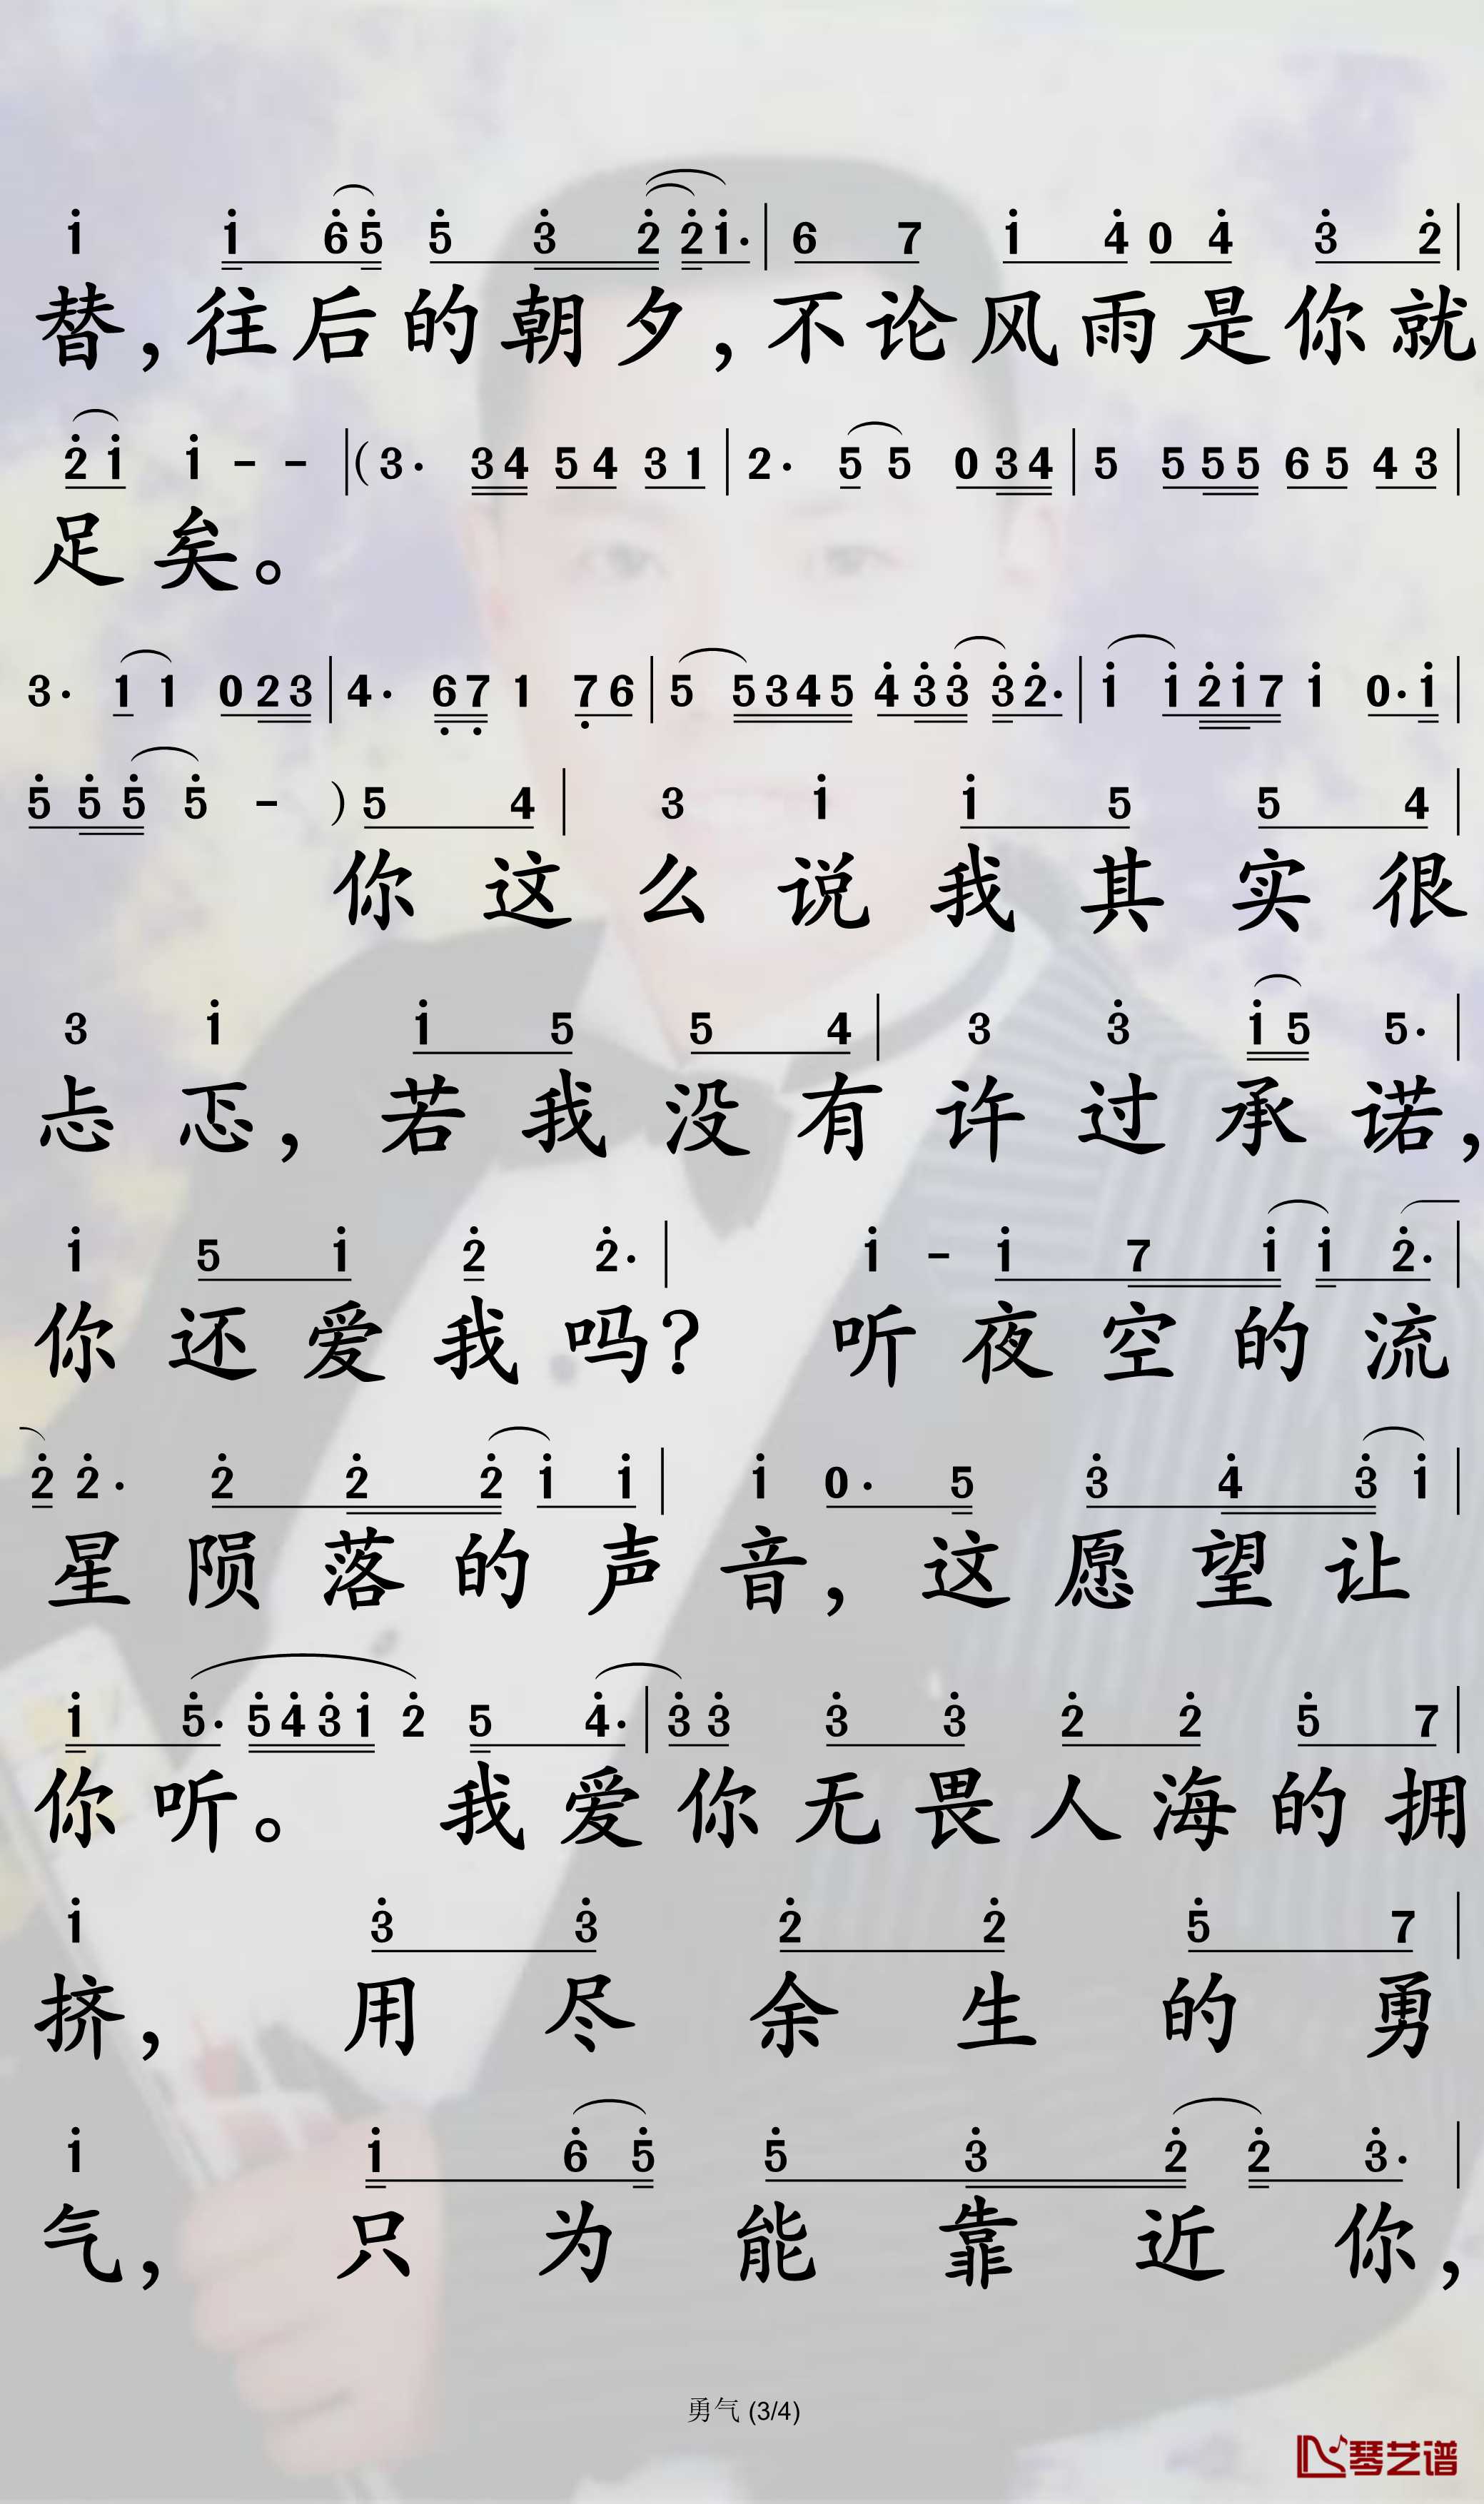 1̇ 1̇ 6̇ 5̇ 5̇ 3̇ 2̇ 2̇ 1̇· | 6 7 1̇ 4̇ 0 4̇ 3̇ 2̇ |
替,往后的朝夕,不论风雨是你就
2̇ 1̇ 1̇ - - |(3· 34 54 31 | 2· 5 5 034 | 5 555 65 43 |
足矣。
3· 1 1 023 | 4· 6̣7̣ 1 7̣6 | 5 5345 4̇3̇3̇ 3̇2̇· | 1̇ 1̇2̇1̇7 1̇ 0·1̇ |
5̇ 5̇ 5̇ 5̇ - ) 5 4 | 3 1̇ 1̇ 5 5 4 |
你这么说我其实很
3 1̇ 1̇ 5 5 4 | 3 3̇ 1̇ 5 5· |
忐忑,若我没有许过承诺,
1̇ 5 1̇ 2̇ 2̇· | 1̇ - 1̇ 7 1̇ 1̇ 2̇· |
你还爱我吗? 听夜空的流
2̇ 2̇· 2̇ 2̇ 2̇ 1̇ 1̇ | 1̇ 0· 5 3̇ 4̇ 3̇ 1̇ |
星陨落的声音,这愿望让
1̇ 5̇· 5̇4̇3̇1̇ 2̇ 5 4̇· | 3̇ 3̇ 3̇ 3̇ 2̇ 2̇ 5̇ 7 |
你听。 我爱你无畏人海的拥
1̇ 3̇ 3̇ 2̇ 2̇ 5̇ 7 |
挤, 用尽余生的勇
1̇ 1̇ 6̇ 5̇ 5̇ 3̇ 2̇ 2̇ 3̇· |
气, 只为能靠近你,
勇气 (3/4)
琴艺谱